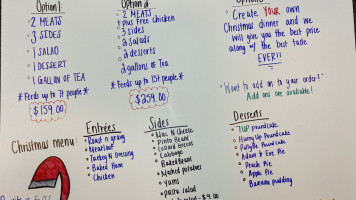 Option 1:
- 2 MEATS
- 3 SIDES
- 1 SALAD
- 1 DESSERT
- 1 GALLON OF TEA
* Feeds up to 7+ people *
$159.00
Option 2:
- 2 MEATS
+ plus Free chicken
- 3 sides
- 2 Salads
- 2 desserts
2 gallons of Tea
* Feeds up to 15+ people *
$259.00
Create YOUR own
Christmas dinner and we
will give you the best price
along w/ the best taste
EVER!!
"Want to add on to your order!"
Add ons are available!
Christmas menu:
Entrées
Roast n gravy
Meatloaf
Turkey n Dressing
Baked Ham
Chicken
Sides
Mac N Cheese
Pinto Beans
Collard Greens
Cabbage
Baked Beans
Mashed potatoes
Yams
Pasta salad
$9.00
Desserts
7UP poundcake
Pound cake
Adam & Eve Pie
Peach Pie
Apple Pie
Banana pudding